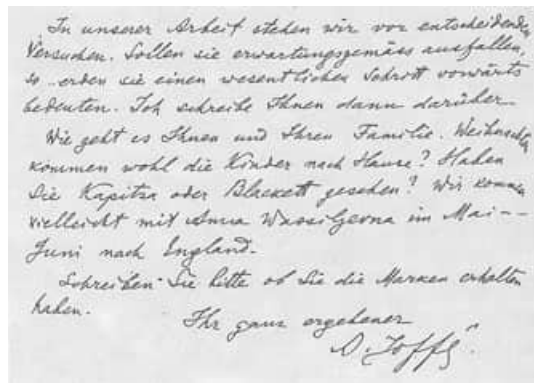 In unserer Arbeit stehen wir vor entscheidenden
Versuchen. Sollen sie erwartungsgemäss ausfallen,
so ..erden sie einen wesentlichen Schritt vorwärts
bedeuten. Ich schreibe Ihnen dann darüber
Wie geht es Ihnen und Ihrer Familie. Weihnachten
kommen wohl die Kinder nach Hause? Haben
Sie Kapitza oder Blackett gesehen? Wir kommen
vielleicht mit Anna Wassiljevna im Mai--
Juni nach England.
Schreiben Sie bitte ob Sie die Marken erhalten
haben.
Ihr ganz ergebener
A. Joffé